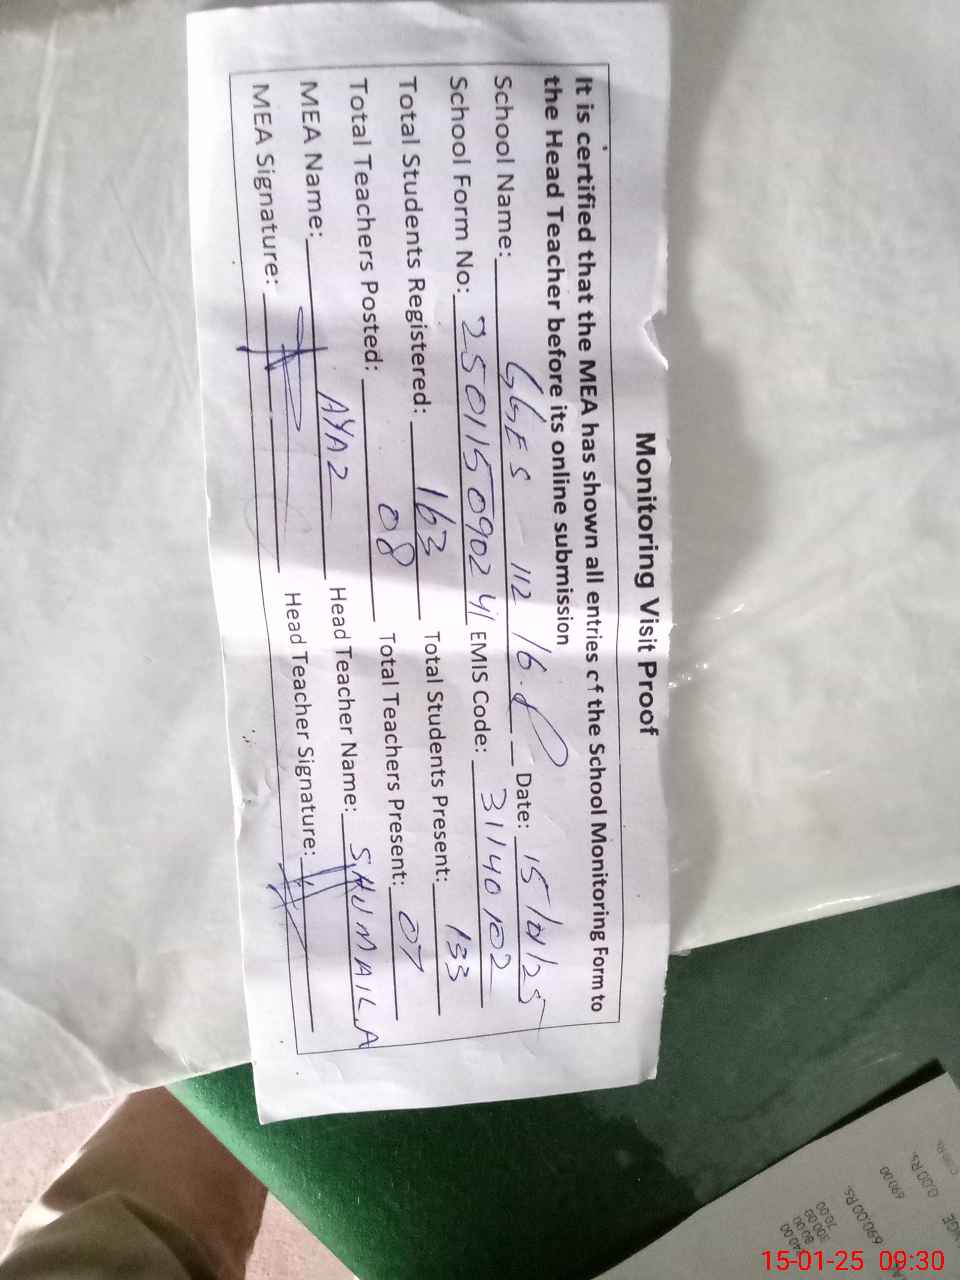 Monitoring Visit Proof
It is certified that the MEA has shown all entries of the School Monitoring Form to
the Head Teacher before its online submission
School Name: GGES 112 16.P Date: 15/01/25
School Form No: 25011509024 EMIS Code: 31140102
Total Students Registered: 163 Total Students Present: 133
Total Teachers Posted: 08 Total Teachers Present: 07
MEA Name: AYAZ Head Teacher Name: SHUMAILA
MEA Signature: Head Teacher Signature:
0.00 Rs.
690.00
690.00 Rs.
70.00
300.00
80.00
15-01-25 09:30